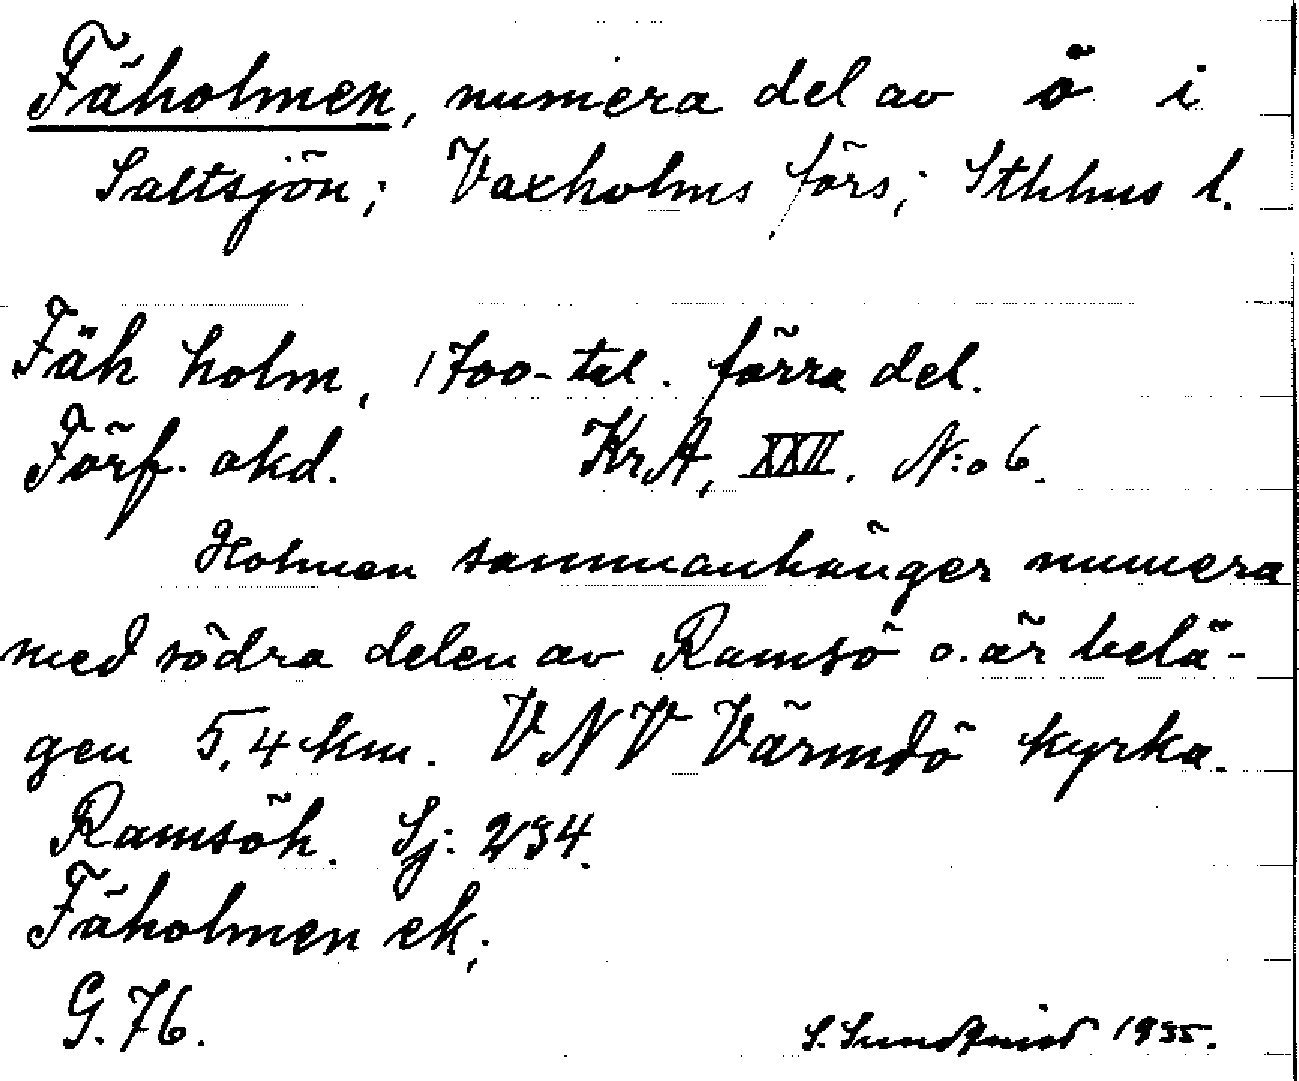 Fäholmen, numera del av ö i
Saltsjön; Vaxholms förs; Sthlms l.
Fäh holm, 1700-tal. förra del.
Förf. okd. KrA, XXII. N:o 6.
Holmen sammanhänger numera
med södra delen av Ramsö o. är belä-
gen 5,4 km. VNV Värmdö kyrka.
Ramsöh. Sj: 234.
Fäholmen ek;
G. 76.
S. Sundqvist 1935.